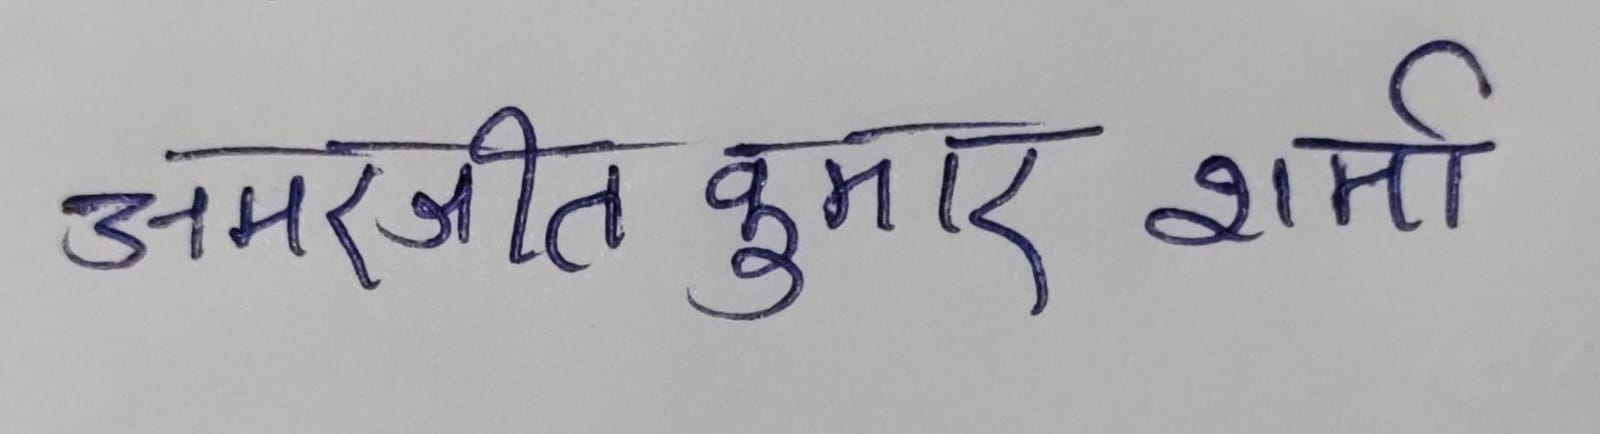 अमरजीत कुमार शर्मा